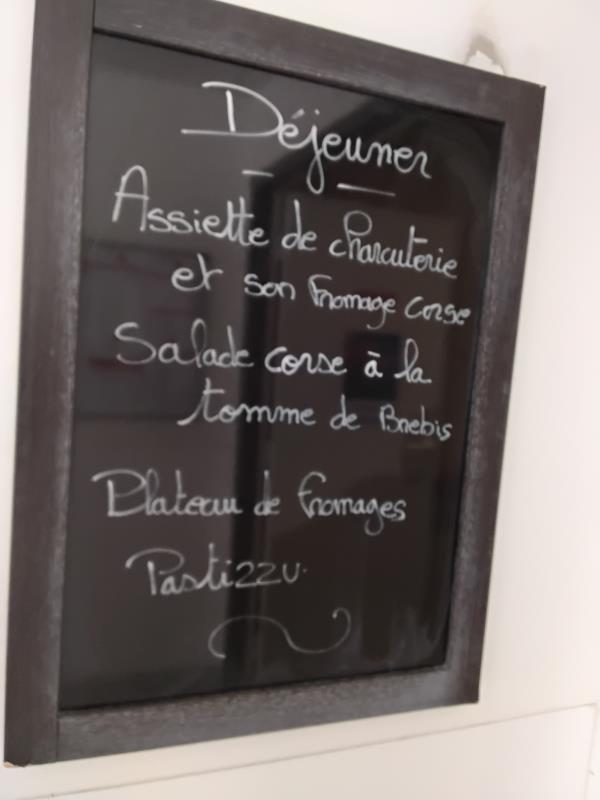 Déjeuner
Assiette de charcuterie
et son fromage corse
Salade corse à la
tomme de Brebis
Plateau de fromages
Pastizzu.